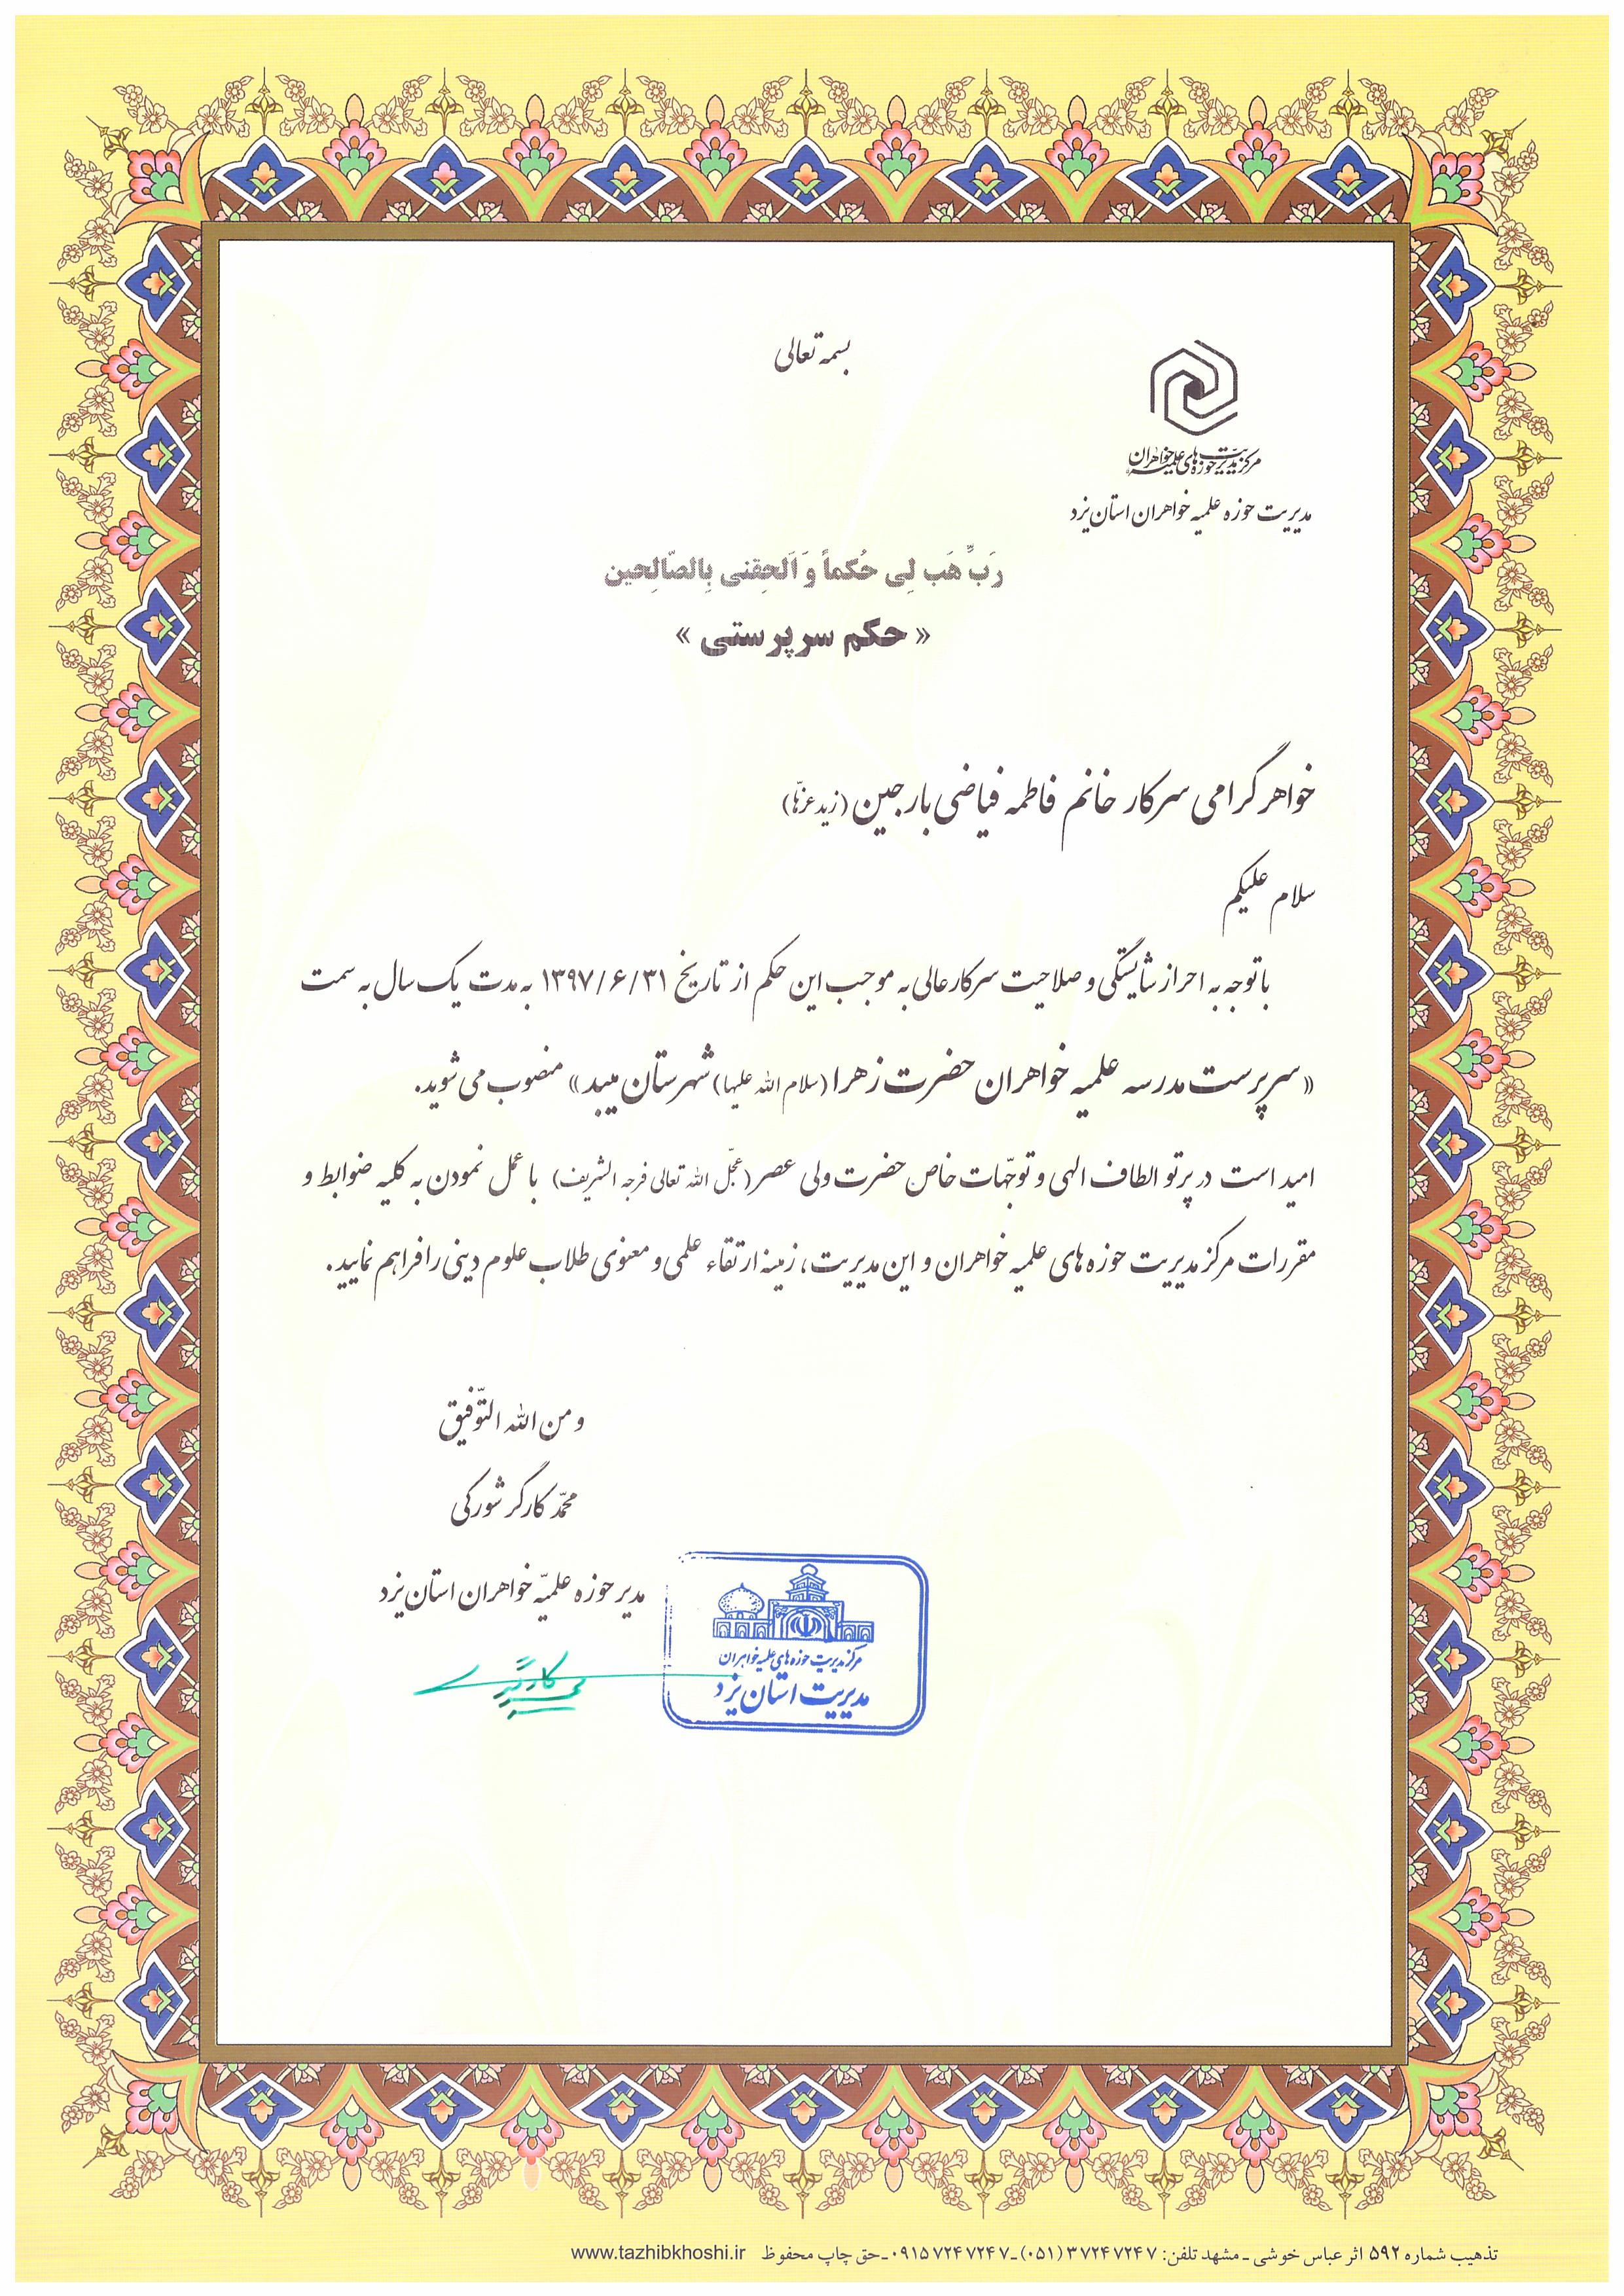 بسمه تعالی
مرکز مدیریت حوزه های علمیه خواهران
مدیریت حوزه علمیه خواهران استان یزد
رَبِّ هَب لِی حُکماً وَ اَلحِقنی بِالصّالِحین
« حکم سرپرستی »
خواهر گرامی سرکار خانم فاطمه فیاضی بارجین (زید عزّها)
سلام علیکم
با توجه به احراز شایستگی و صلاحیت سرکارعالی به موجب این حکم از تاریخ ۱۳۹۷/۶/۳۱ به مدت یک سال به سمت
« سرپرست مدرسه علمیه خواهران حضرت زهرا (سلام الله علیها) شهرستان میبد» منصوب می شوید.
امید است در پرتو الطاف الهی و توجّهات خاص حضرت ولی عصر (عجّل الله تعالی فرجه الشریف) با عمل نمودن به کلیه ضوابط و
مقررات مرکز مدیریت حوزه های علمیه خواهران و این مدیریت، زمینه ارتقاء علمی و معنوی طلاب علوم دینی را فراهم نمایید.
و من الله التّوفیق
محمّد کارگر شورکی
مدیر حوزه علمیّه خواهران استان یزد
مرکز مدیریت حوزه های علمیه خواهران
مدیریت استان یزد
تذهیب شماره ۵۹۲ اثر عباس خوشی ـ مشهد تلفن: ۳۷۲۴۷۲۴۷ (۰۵۱) ـ ۰۹۱۵۷۲۴۷۲۴۷ ـ حق چاپ محفوظ www.tazhibkhoshi.ir